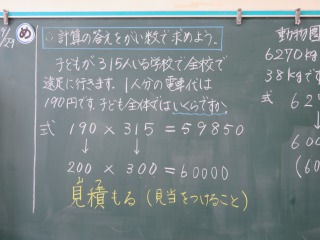 9/29
め
計算の答えをがい数で求めよう。
子どもが315人いる学校で全校で
遠足に行きます。1人分の電車代は
190円です。子ども全体ではいくらですか。
式 190 × 315 = 59850
↓ ↓
200 × 300 = 60000
みつ
見積もる(見当をつけること)
動物園
6270k
38kgで
式 62
600
(60